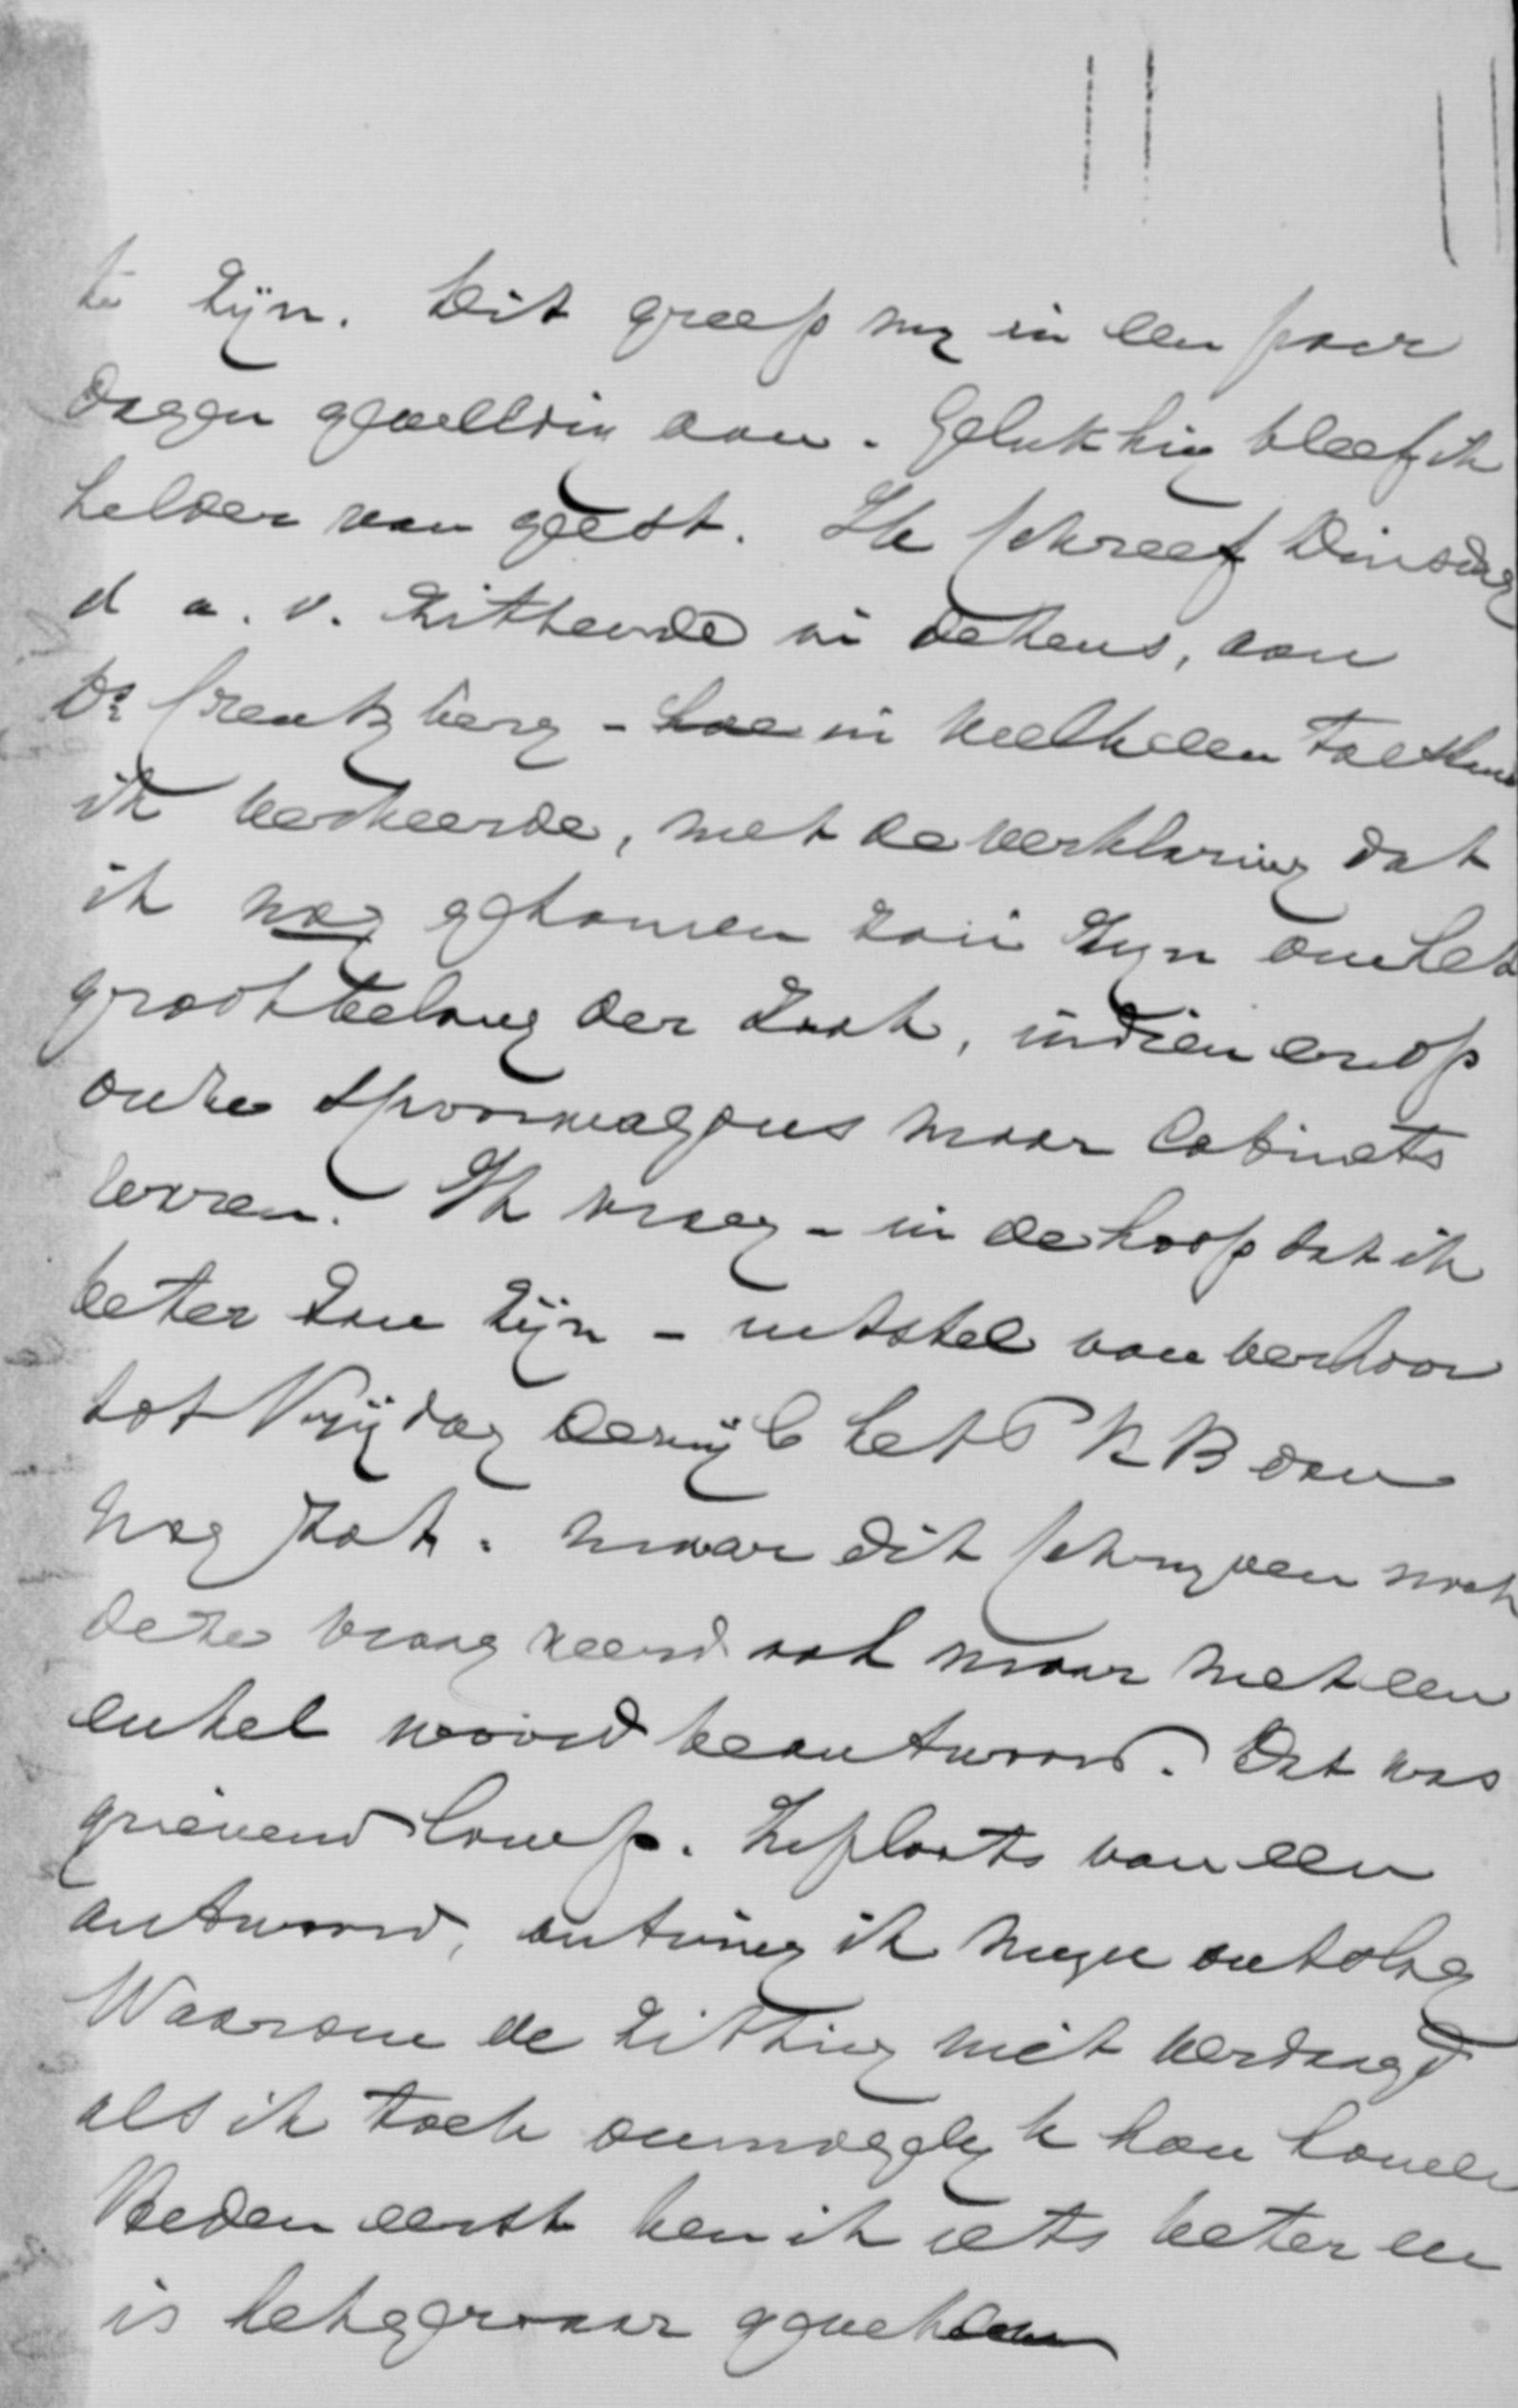 te zijn. Dit greep my in een paar
dagen geweldig aan. Gelukkig bleef ik
helder van geest. Ik schreef Dinsdag
d a. v. zittende in dekens, aan
Dr Creutzberg - hoe in welken toestand
ik verkeerde, met de verklaring dat
ik nog gekomen zou zyn om het
groot belang der zaak, indien er op
onze spoorwagons maar Cabinets
waren. Ik vraag - in de hoop dat ik
beter zou zijn - uitstel van verhoor
tot Vrijdag terwijl het P K B dan
nog zat. Maar dit schryven noch
deze vraag werd ook maar met een
enkel woord beantwoord. Dat was
grievend lomp. In plaats van een
antwoord, ontving ik myn ontslag
Waarom de zitting niet verdaagd
als ik toch onmogelyk kon komen
Heden eerst ben ik iets beter en
is het gevaar geweken